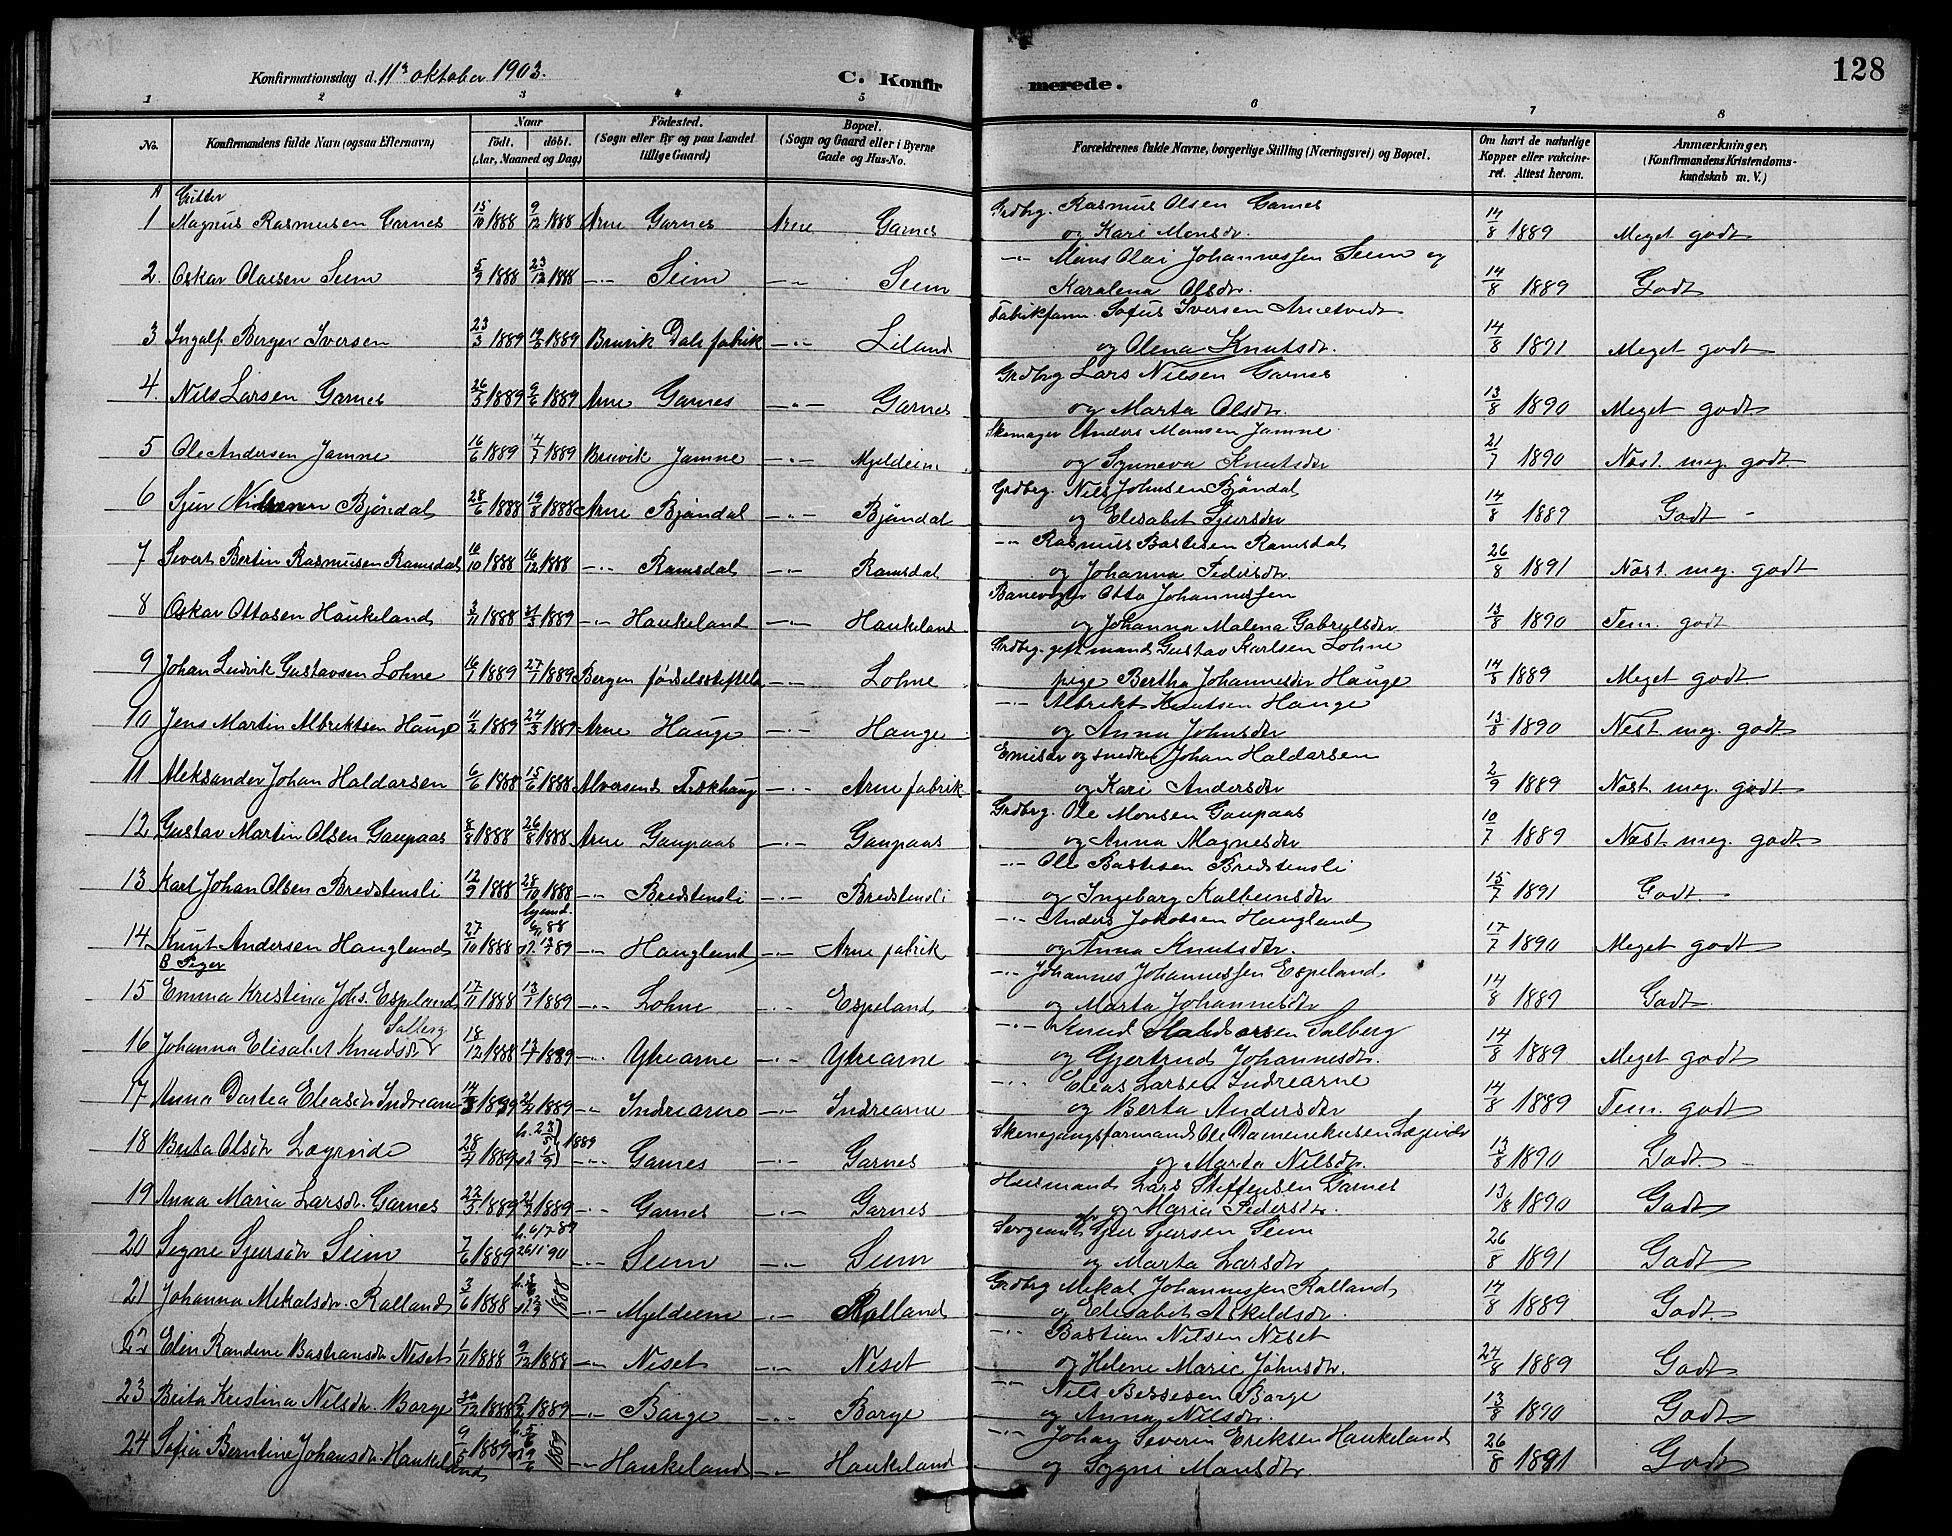 Konfirmationsdag d. 11te oktober 1903.
C. Konfirmerede.
128
1 2 3 4 5 6 7 8
No. Konfirmandens fulde Navn (ogsaa Efternavn) Naar født. døbt. (Aar, Maaned og Dag) Fødested. (Sogn eller By og paa Landet tillige Gaard) Bopæl. (Sogn og Gaard eller i Byerne Gade og Hus-No. Forældrenes fulde Navne, borgerlige Stilling (Næringsvei) og Bopæl. Om havt de naturlige Kopper eller vakcineret. Attest herom. Anmærkninger. (Konfirmandens Kristendomskundskab m. V.)
A Gutter
Grdbrg. Rasmus Olsen Garnes
1 Magnus Rasmussen Garnes 15/10 1888 9/12 1888 Arne Garnes Arne Garnes og Kari Monsdr. 14/8 1889 Meget godt
-"- Mons Olai Johannessen Seim og
2. Oskar Olaisen Seim 5/9 1888 23/12 1888 -"- Seim -"- Seim Karolena Olsdr. 14/8 1889 Godt
Sofus Iversen Arnetvedt
3 Ingolf Berger Iversen 23/3 1889 1889 Bruvik Dale fabrik -"- Liland og Olena Knutsdr. 14/8 1891 Meget godt
Grdbrg Lars Nilsen Garnes
4. Nils Larsen Garnes 26/5 1889 9/6 1889 Arne Garnes -"- Garnes og Marta Olsdr. 13/8 1890 Meget godt
Skomager Anders Monsen Jamne
5 Ole Andersen Jamne 16/6 1889 7/7 1889 Bruvik Jamne -"- Mjeldeim og Synneva Knutsdr 21/7 1890 Næst. meg. godt.
Grdbrg. Nils Johnsen Bjöndal
6 Sjur Nilsen Bjöndal 28/6 1888 19/8 1888 Arne Bjöndal -"- Bjöndal og Elisabet Sjursdr 14/8 1889 Godt -
-"- Rasmus Bastesen Ramsdal
7 Sivert Bertin Rasmussen Ramsdal 16/10 1888 16/12 1888 -"- Ramsdal -"- Ramsdal og Johanna Pedersdr. 26/8 1891 Næst. meg. godt
Banevogter Otto Johannessen
8 Oskar Ottosen Haukeland 3/11 1888 1889 -"- Haukeland -"- Haukeland og Johanna Malena Gabrielsdr 13/8 1890 Tem. godt
Grdbrg. gift mand Gustav Karlsen Lohne
9 Johan Ludvik Gustavsen Lohne 16/7 1889 27/7 1889 Bergen fødselsstiftels -"- Lohne pige Bertha Johannesdr Hauge 14/8 1889 Meget godt
-"- Albrikt Knutsen Hauge
10 Jens Martin Albriktsen Hauge 11/2 1889 24/3 1889 Arne Hauge -"- Hauge og Anna Johnsdr 13/8 1890 Næst meg. godt
Emissr og snedker Johan Haldorsen
11 Aleksander Johan Haldorsen 6/6 1888 15/6 1888 Alversund -"- Arne fabrik og Kari Andersdr 2/9 1889 Næst. meg. godt.
Grdbrg. Ole Monsen Gaupaas
12 Gustav Martin Olsen Gaupaas 8/8 1888 26/8 1888 Arne Gaupaas -"- Gaupaas og Anna Magnesdr 10/7 1889 Næst meg. godt
-"- Ole Bastesen Bredstensli
13 Karl Johan Olsen Bredstensli 12/9 1888 28/10 1888 -"- Bredstensli -"- Bredstensli og Ingeborg Kolbeinsdr 15/7 1891 Godt.
-"- Anders Jakobsen Haugland
14 Knut Andersen Haugland 27/10 1888 hjemd. 88 89 -"- Haugland -"- Arne fabrik og Anna Knutsdr. 17/7 1890 Meget godt
B Piger
-"- Johannes Johannessen Espeland
15 Emma Kristina Johs. Espeland 17/11 1888 13/7 1889 -"- Lohne -"- Espeland og Marta Johannesdr 14/8 1889 Godt.
-"- Knud Haldorsen Salberg
16 Johanna Elisabet Knudsdr Salberg 18/12 1888 13/7 1889 -"- Ytrearne -"- Ytrearne og Gjertrud Johannesdr. 14/8 1889 Meget godt
-"- Elias Larsen Indrearne
17 Anna Dortea Eliasdr Indrearne 1889 1889 -"- Indrearne -"- Indrearne og Berta Andersdr 14/8 1889 Tem. godt
Ole Lægreide
18 Brita Olsdr Lægreide 28/4 1889 h. 23/5 1889 -"- Garnes -"- Garnes og Marta Nilsdr. 13/8 1890 Godt. -
Husmand Lars Steffensen Garnes
19 Anna Maria Larsdr. Garnes 22/5 1889 1889 -"- Garnes -"- Garnes og Maria Pedersdr. 13/8 1890 Godt
Sergeant Sjur Sjursen Seim
20 Signe Sjursdr Seim 7/6 1889 h. 6/7-89 26/1 90 -"- Seim -"- Seim og Marta Larsdr 26/8 1891 Godt
Grdbrg Mikal Johannessen Kalland
21 Johanna Mikalsdr. Kalland 3/6 1888 1888 -"- Mjeldeim -"- Kalland og Elisabet Askeldsdr. 14/8 1889 Godt.
-"- Bastian Nilsen Neset
22 Elin Randine Bastiansdr Neset 1/11 1888 9/12 1888 -"- Neset -"- Neset og Helene Marie Johnsdr. 24/8 1889 Godt
-"- Nils Bessesen Borge
23 Brita Kristina Nilsdr. Borge 30/12 1888 1889 -"- Borge -"- Borge og Anna Nilsdr. 13/8 1890 Godt
-"- Johan Severin Eriksen Haukeland
24 Sofia Berntine Johansdr. Haukeland 9/5 1889 1889 -"- Haukeland -"- Haukeland og Sygni Monsdr. 26/8 1891 Godt